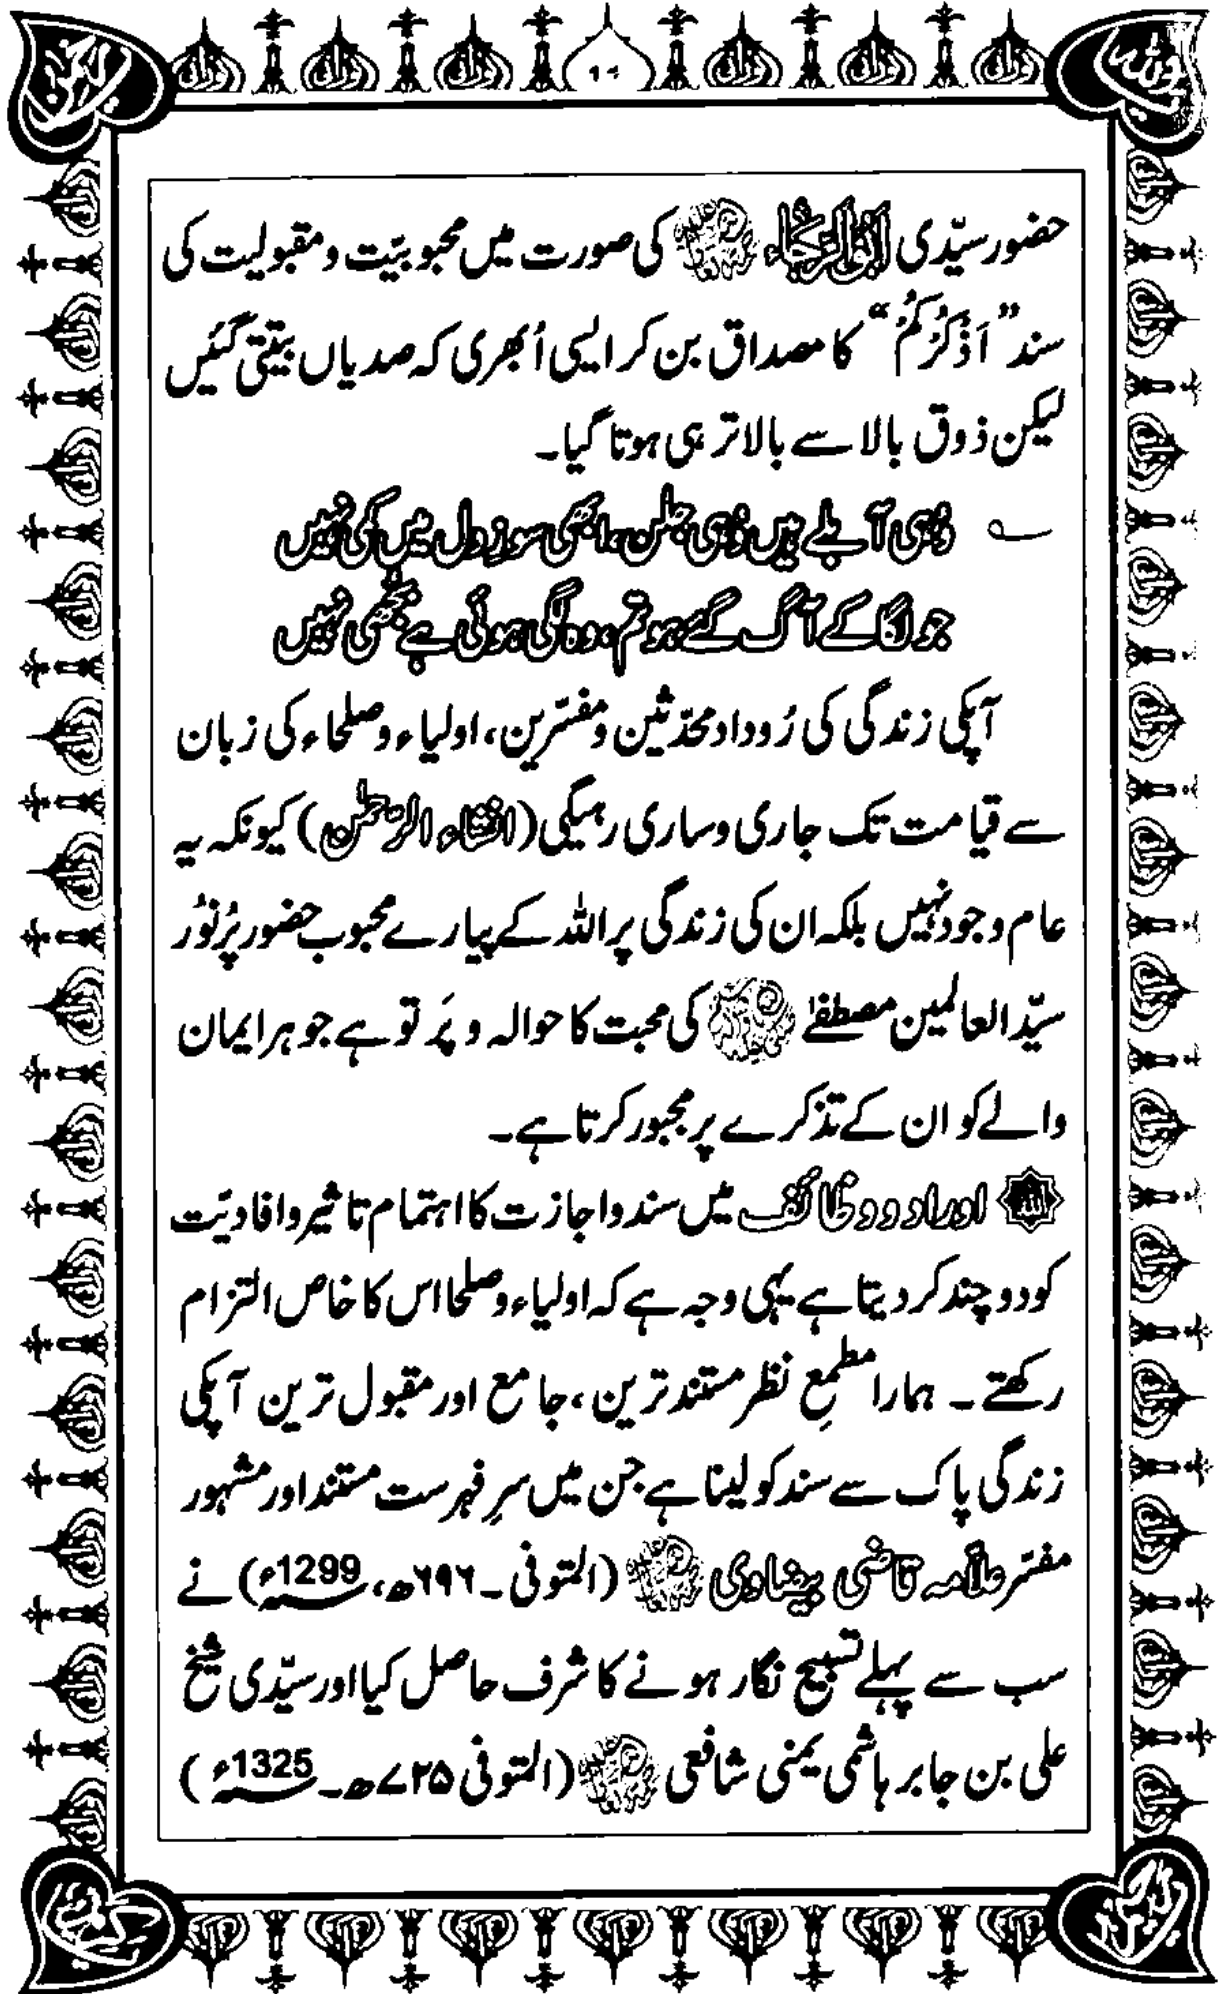 حضور سیّدی ابو الرَّجاء کی صورت میں محبوبیّت و مقبولیت کی
سند ”اَذْکُرْکُمْ“ کا مصداق بن کر ایسی اُبھری کہ صدیاں بیتتی گئیں
لیکن ذوق بالا سے بالاتر ہی ہوتا گیا۔
وُہی آبلے ہیں وُہی جلن، ابھی سوزِ دل میں کمی نہیں
جو لگا کے آگ گئے ہو تم، وہ لگی ہوئی ہے بُجھی نہیں
آپکی زندگی کی رُوداد محدّثین و مفسّرین، اولیاء و صلحاء کی زبان
سے قیامت تک جاری و ساری رہیگی (انشاء الرّحمٰن) کیونکہ یہ
عام وجود نہیں بلکہ ان کی زندگی پر اللہ کے پیارے محبوب حضور پُرنُور
سیّد العالمین مصطفےٰ ﷺ کی محبت کا حوالہ و پَرتو ہے جو ہر ایمان
والے کو ان کے تذکرے پر مجبور کرتا ہے۔
اللہ اوراد و وظائف میں سند و اجازت کا اہتمام تاثیر و افادیّت
کو دو چند کر دیتا ہے یہی وجہ ہے کہ اولیاء و صلحا اس کا خاص التزام
رکھتے ۔ ہمارا مطمعِ نظر مستند ترین، جامع اور مقبول ترین آپکی
زندگی پاک سے سند کو لینا ہے جن میں سرِ فہرست مستند اور مشہور
مفسّر علاّمہ قاضی بیضاوی (المتوفی ۔ ۶۹۶ھ، 1299ء) نے
سب سے پہلے تسبیح نگار ہونے کا شرف حاصل کیا اور سیّدی شیخ
علی بن جابر ہاشمی یمنی شافعی (المتوفی ۷۲۵ھ ۔ 1325ء)